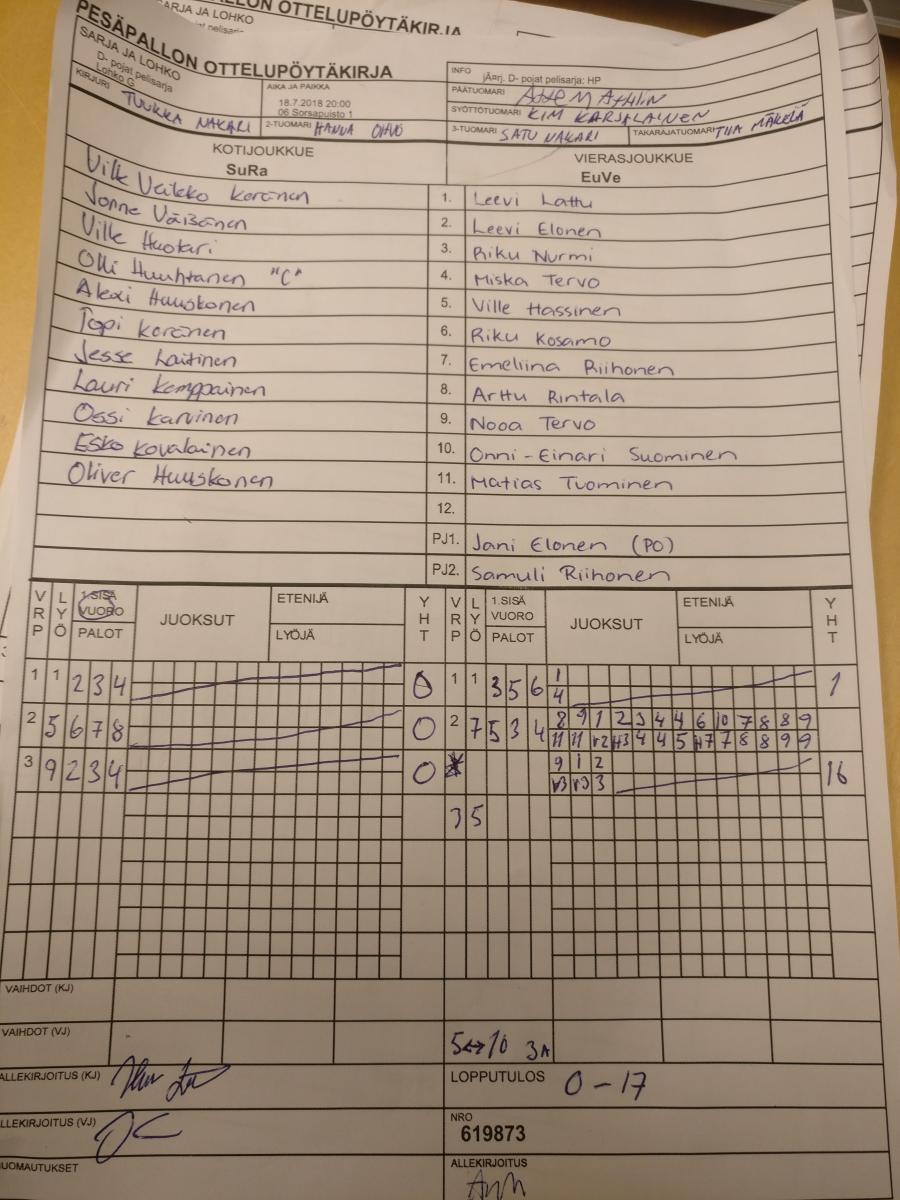 ARJA JA LOHKO
ALLON OTTELUPÖYTÄKIRJA
PESÄPALLON OTTELUPÖYTÄKIRJA
SARJA JA LOHKO
D- pojat pelisarja
Lohko G
AIKA JA PAIKKA
18.7.2018 20:00
06 Sorsapuisto 1
INFO
jÄrj. D- pojat pelisarja: HP
PÄÄTUOMARI
SYÖTTÖTUOMARI KIM KARJALAINEN
KIRJURI TUUKKA NAKARI
2-TUOMARI HANNA
3-TUOMARI SATU NAKARI
TAKARAJATUOMARI TIIA MÄKELÄ
KOTIJOUKKUE
SuRa
VIERASJOUKKUE
EuVe
Ville Veikko Koronen 1. Leevi Lattu
Jonne Väisänen 2. Leevi Elonen
Ville Huotari 3. Riku Nurmi
Olli Huuhtanen "C" 4. Miska Tervo
Alexi Huuskonen 5. Ville Hassinen
Topi Koronen 6. Riku Kosamo
Jesse Laitinen 7. Emeliina Riihonen
Lauri Kemppainen 8. Arttu Rintala
Ossi Karvinen 9. Nooa Tervo
Esko Kovalainen 10. Onni-Einari Suominen
Oliver Huuskonen 11. Matias Tuominen
12.
PJ1. Jani Elonen (PO)
PJ2. Samuli Riihonen
VRP LYÖ 1.SISÄ VUORO PALOT JUOKSUT ETENIJÄ LYÖJÄ YHT VRP LYÖ 1.SISÄ VUORO PALOT JUOKSUT ETENIJÄ LYÖJÄ YHT
1 1 2 3 4 0 1 1 3 5 6 1 1
4
2 5 6 7 8 0 2 7 5 3 4 8 9 1 2 3 4 4 6 10 7 8 8 9
11 11 v2 H3 4 4 5 H7 7 8 8 9 9
3 9 2 3 4 0 9 1 2 16
v3 v3 3
3 5
VAIHDOT (KJ)
VAIHDOT (VJ) 5↔10 3A
ALLEKIRJOITUS (KJ)
LOPPUTULOS 0-17
LLEKIRJOITUS (VJ)
NRO
619873
UOMAUTUKSET
ALLEKIRJOITUS